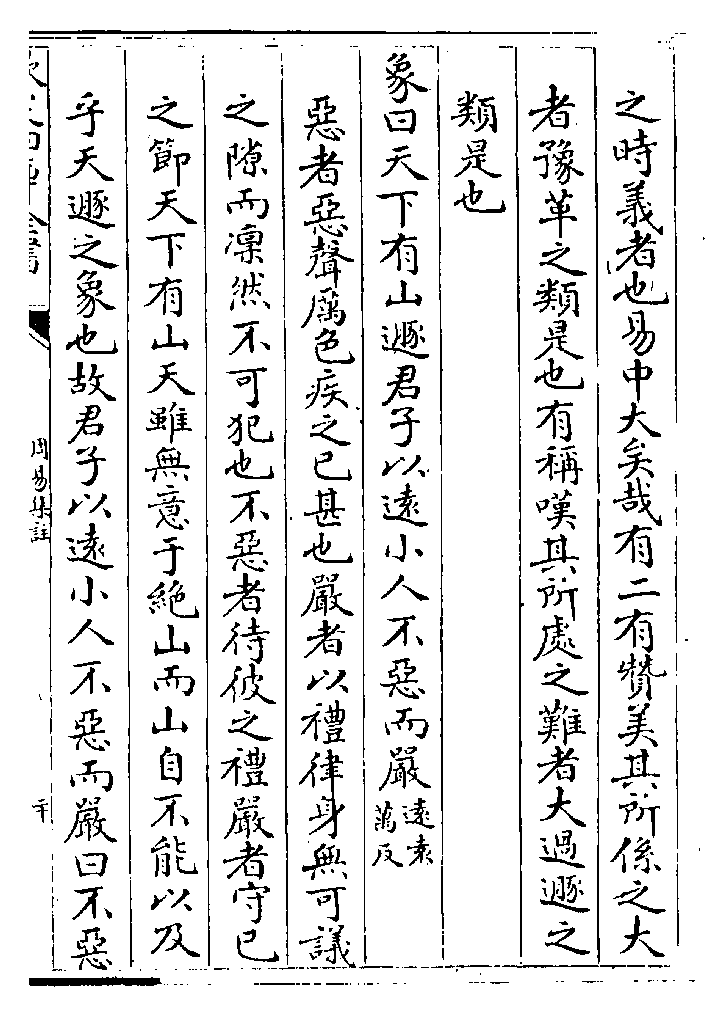 之時義者也易中大矣哉有二有贊美其所係之大
者豫革之類是也有稱嘆其所處之難者大過遯之
類是也
象曰天下有山遯君子以遠小人不惡而嚴遠袁萬反
惡者惡聲厲色疾之已甚也嚴者以禮律身無可議
之隙而凜然不可犯也不惡者待彼之禮嚴者守己
之節天下有山天雖無意于絶山而山自不能以及
乎天遯之象也故君子以遠小人不惡而嚴曰不惡
周易集註
二十